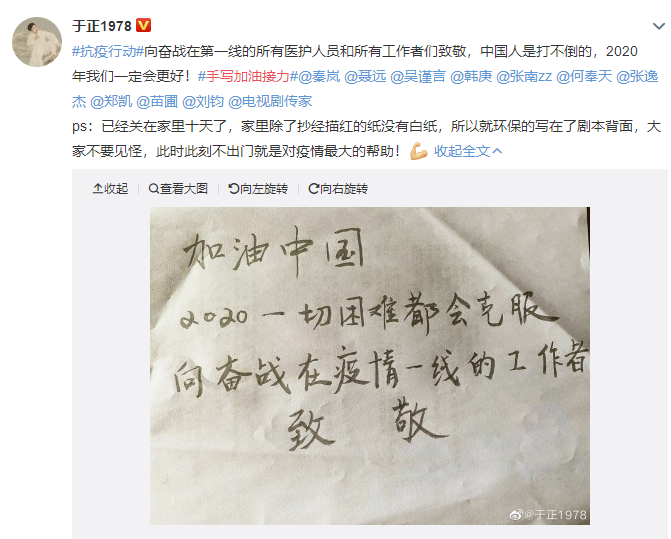 于正1978
#抗疫行动#向奋战在第一线的所有医护人员和所有工作者们致敬，中国人是打不倒的，2020
年我们一定会更好！#手写加油接力#@秦岚 @聂远 @吴谨言 @韩庚 @张南zz @何奉天 @张逸
杰 @郑凯 @苗圃 @刘钧 @电视剧传家
ps：已经关在家里十天了，家里除了抄经描红的纸没有白纸，所以就环保的写在了剧本背面，大
家不要见怪，此时此刻不出门就是对疫情最大的帮助！ 收起全文
收起 查看大图 向左旋转 向右旋转
加油中国
2020一切困难都会克服
向奋战在疫情一线的工作者
致 敬
@于正1978